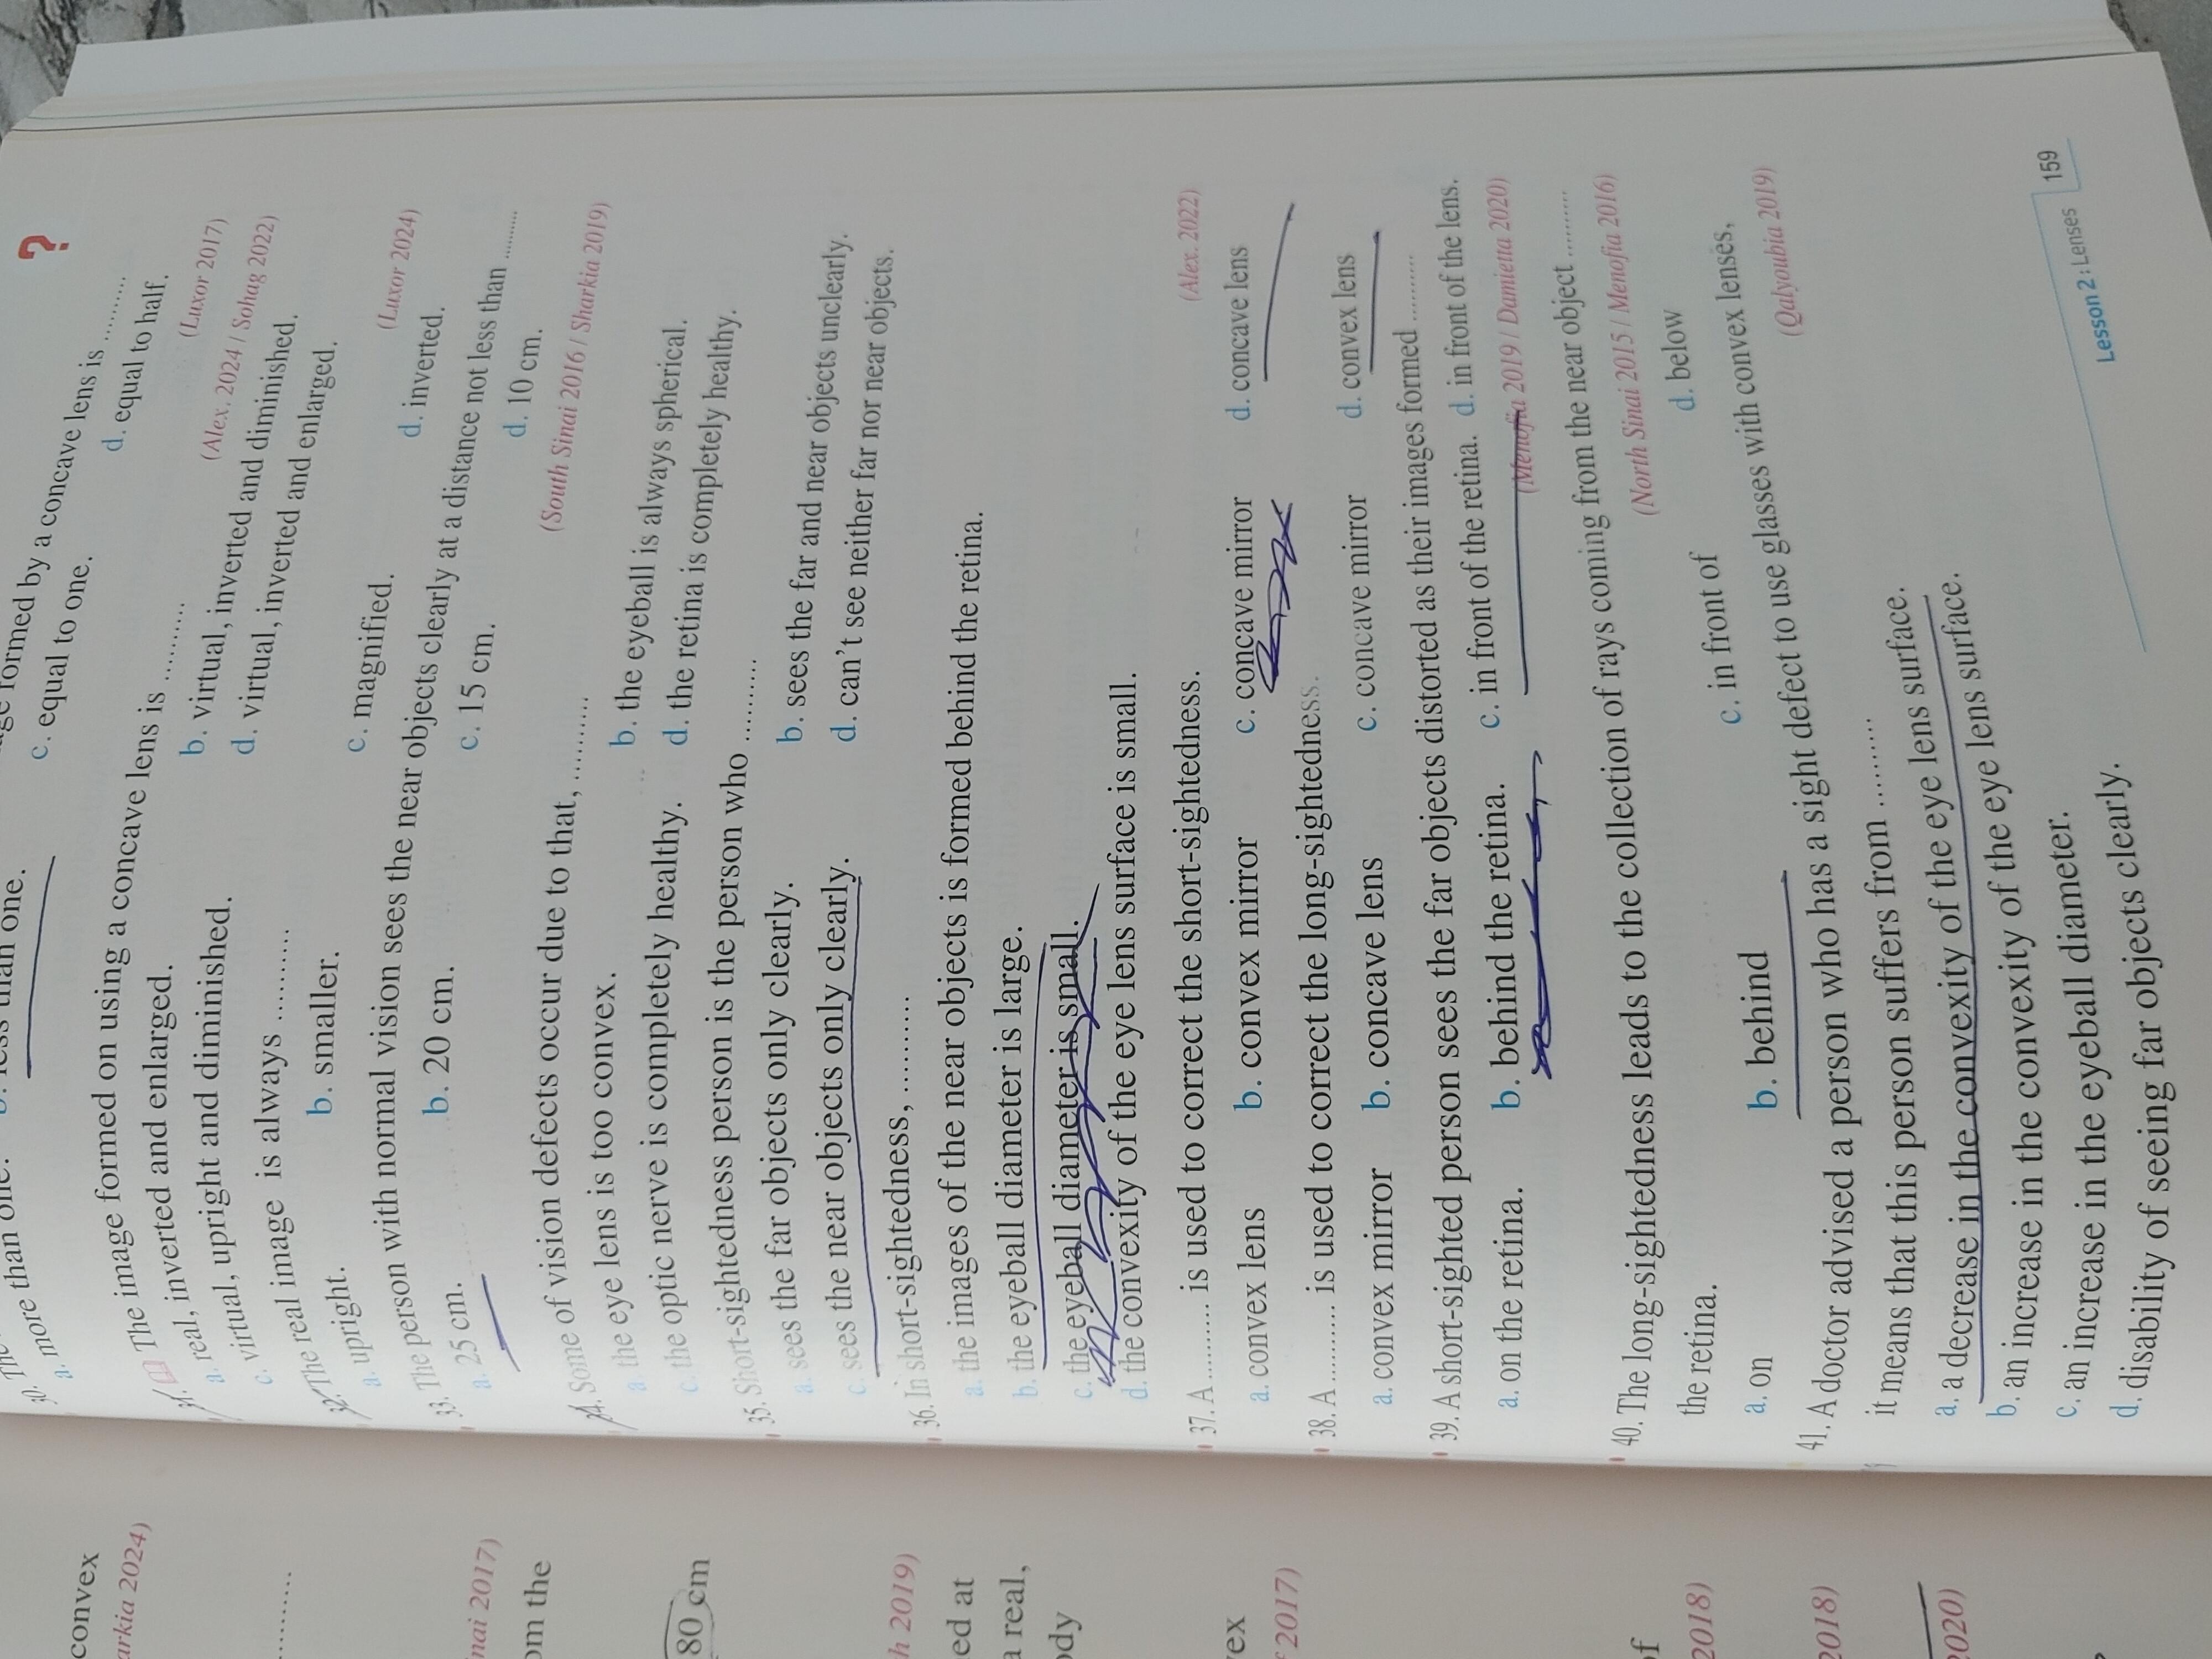 ?
formed by a concave lens is ..........
a. more than one. b. less than one. c. equal to one. d. equal to half.
(Luxor 2017)
31. The image formed on using a concave lens is .......... (Alex. 2024 / Sohag 2022)
a. real, inverted and enlarged. b. virtual, inverted and diminished.
a. virtual, upright and diminished. d. virtual, inverted and enlarged.
c.
32. The real image is always .......... (Luxor 2024)
a. upright. b. smaller. c. magnified. d. inverted.
33. The person with normal vision sees the near objects clearly at a distance not less than ..........
a. 25 cm. b. 20 cm. c. 15 cm. d. 10 cm.
(South Sinai 2016 / Sharkia 2019)
34. Some of vision defects occur due to that, ..........
a. the eye lens is too convex. b. the eyeball is always spherical.
c. the optic nerve is completely healthy. d. the retina is completely healthy.
35. Short-sightedness person is the person who ..........
a. sees the far objects only clearly. b. sees the far and near objects unclearly.
c. sees the near objects only clearly. d. can't see neither far nor near objects.
36. In short-sightedness, ..........
a. the images of the near objects is formed behind the retina.
b. the eyeball diameter is large.
c. the eyeball diameter is small.
d. the convexity of the eye lens surface is small.
37. A .......... is used to correct the short-sightedness. (Alex. 2022)
a. convex lens b. convex mirror c. concave mirror d. concave lens
38. A .......... is used to correct the long-sightedness.
a. convex mirror b. concave lens c. concave mirror d. convex lens
39. A short-sighted person sees the far objects distorted as their images formed ..........
a. on the retina. b. behind the retina. c. in front of the retina. d. in front of the lens.
(Menofia 2019 / Damietta 2020)
40. The long-sightedness leads to the collection of rays coming from the near object ..........
the retina. (North Sinai 2015 / Menofia 2016)
a. on b. behind c. in front of d. below
41. A doctor advised a person who has a sight defect to use glasses with convex lenses,
it means that this person suffers from .......... (Qalyoubia 2019)
a. a decrease in the convexity of the eye lens surface.
b. an increase in the convexity of the eye lens surface.
c. an increase in the eyeball diameter.
d. disability of seeing far objects clearly.
Lesson 2 : Lenses 159
convex
arkia 2024)
..........
nai 2017)
om the
80 cm
h 2019)
ed at
a real,
ody
vex
2017)
of
2018)
2018)
2020)